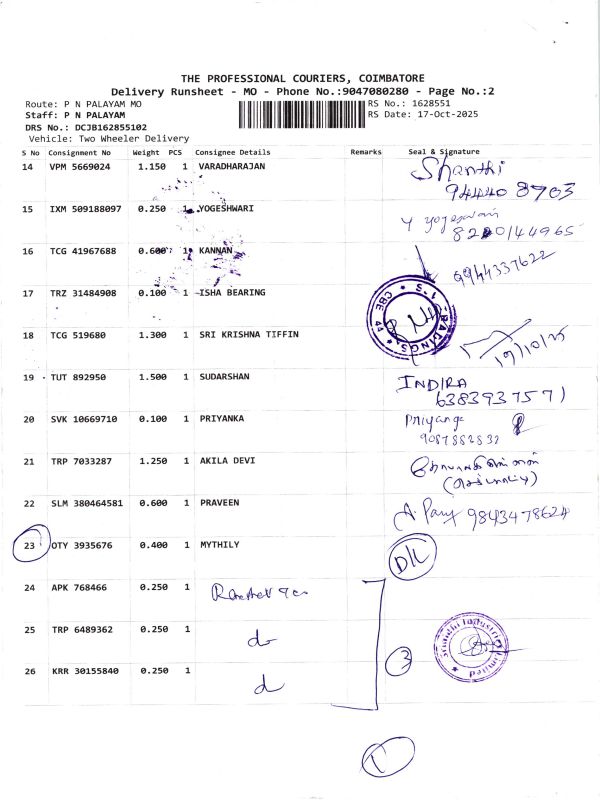 THE PROFESSIONAL COURIERS, COIMBATORE
Delivery Runsheet - MO - Phone No.:9047080280 - Page No.:2
Route: P N PALAYAM MO RS No.: 1628551
Staff: P N PALAYAM RS Date: 17-Oct-2025
DRS No.: DCJB162855102
Vehicle: Two Wheeler Delivery
S No Consignment No Weight PCS Consignee Details Remarks Seal & Signature
14 VPM 5669024 1.150 1 VARADHARAJAN Shanthi
94440 8703
15 IXM 509188097 0.250 1 YOGESHWARI
8220144965
16 TCG 41967688 0.600 1 KANNAN 9944337622
17 TRZ 31484908 0.100 1 ISHA BEARING
CBE 44
18 TCG 519680 1.300 1 SRI KRISHNA TIFFIN 17/10/25
19 TUT 892950 1.500 1 SUDARSHAN INDIRA
6383937571
20 SVK 10669710 0.100 1 PRIYANKA Priyanga
9087882832
21 TRP 7033287 1.250 1 AKILA DEVI
22 SLM 380464581 0.600 1 PRAVEEN 9843478624
23 OTY 3935676 0.400 1 MYTHILY D/L
24 APK 768466 0.250 1
25 TRP 6489362 0.250 1 do
3
26 KRR 30155840 0.250 1 d
1